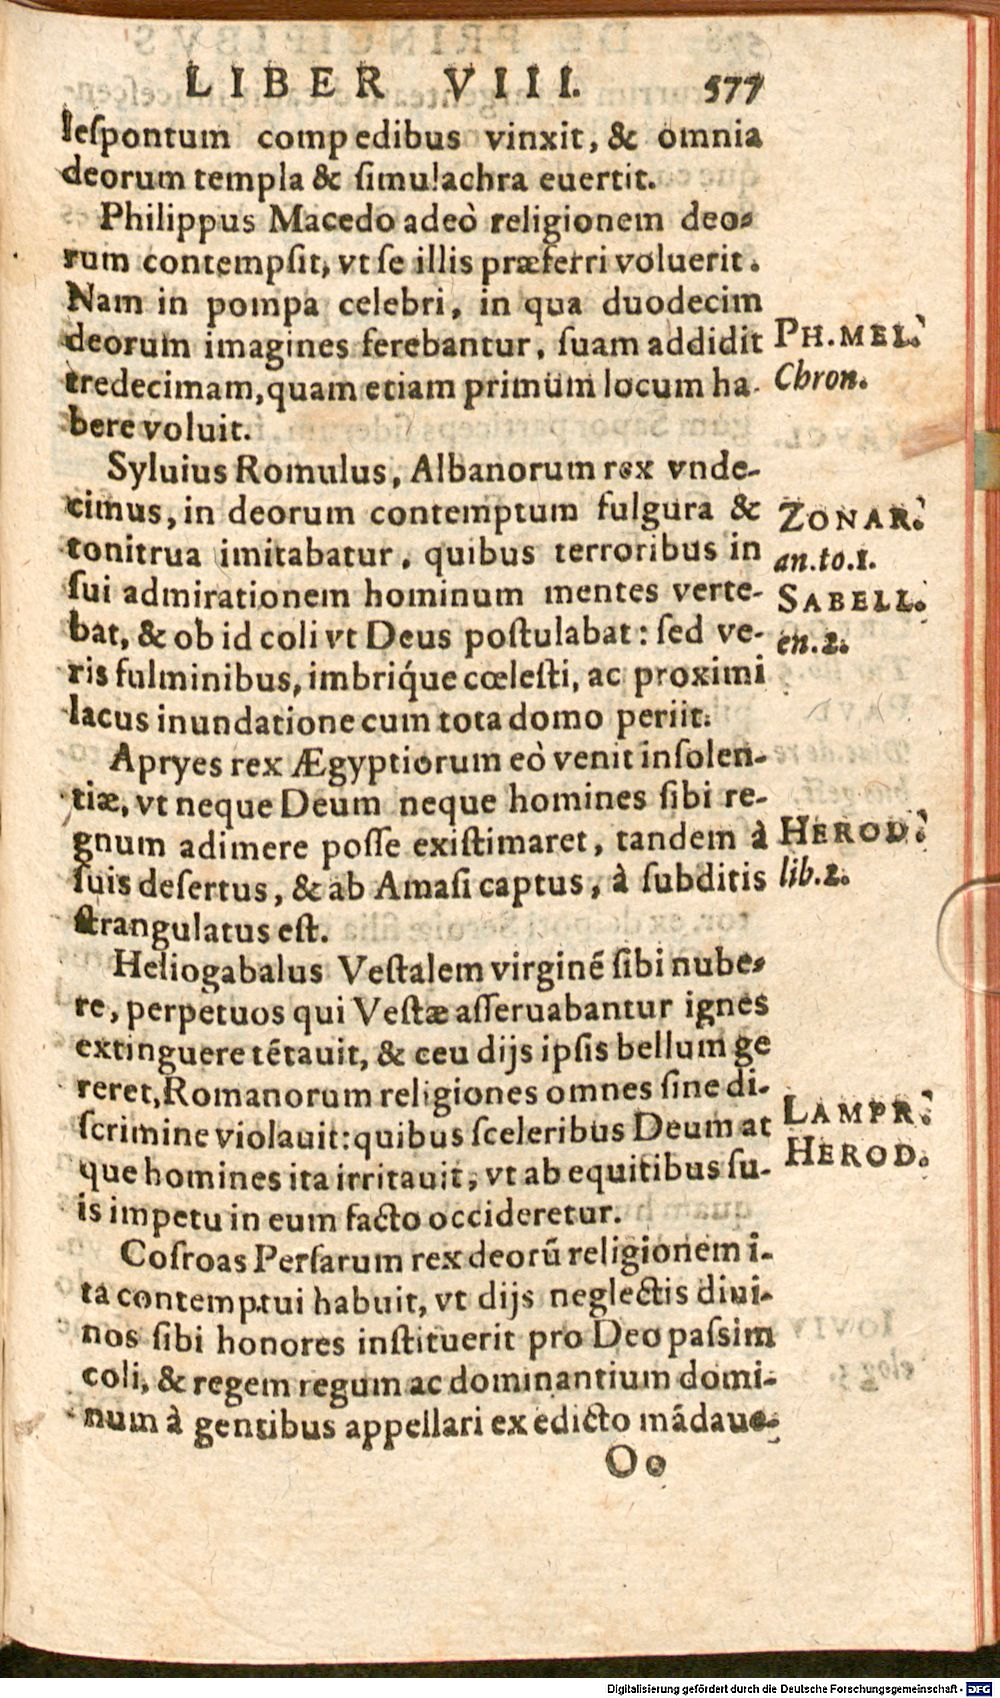 LIBER VIII. 577
leſpontum compedibus vinxit, & omnia
deorum templa & ſimulachra euertit.
Philippus Macedo adeò religionem deo-
rum contempſit, vt ſe illis præferri voluerit.
Nam in pompa celebri, in qua duodecim
deorum imagines ferebantur, ſuam addidit
PH. MEL.
tredecimam, quam etiam primùm locum ha-
Chron.
bere voluit.
Syluius Romulus, Albanorum rex vnde-
cimus, in deorum contemptum fulgura &
ZONAR.
tonitrua imitabatur, quibus terroribus in
an.to.1.
ſui admirationem hominum mentes verte-
SABELL.
bat, & ob id coli vt Deus poſtulabat: ſed ve-
en.2.
ris fulminibus, imbriq́ue cœleſti, ac proximi
lacus inundatione cum tota domo periit.
Apryes rex Ægyptiorum eò venit inſolen-
tiæ, vt neque Deum neque homines ſibi re-
gnum adimere poſſe exiſtimaret, tandem à
HEROD.
ſuis deſertus, & ab Amaſi captus, à ſubditis
lib.2.
ſtrangulatus eſt.
Heliogabalus Veſtalem virginē ſibi nube-
re, perpetuos qui Veſtæ aſſeruabantur ignes
extinguere tētauit, & ceu dijs ipſis bellum ge
reret, Romanorum religiones omnes ſine di-
ſcrimine violauit: quibus ſceleribus Deum at
LAMPR.
que homines ita irritauit, vt ab equitibus ſu-
HEROD.
is impetu in eum facto occideretur.
Coſroas Perſarum rex deorū religionem i-
ta contemptui habuit, vt dijs neglectis diui-
nos ſibi honores inſtituerit pro Deo paſsim
coli, & regem regum ac dominantium domi-
num à gentibus appellari ex edicto mādaue-
Oo
Digitalisierung gefördert durch die Deutsche Forschungsgemeinschaft - DFG